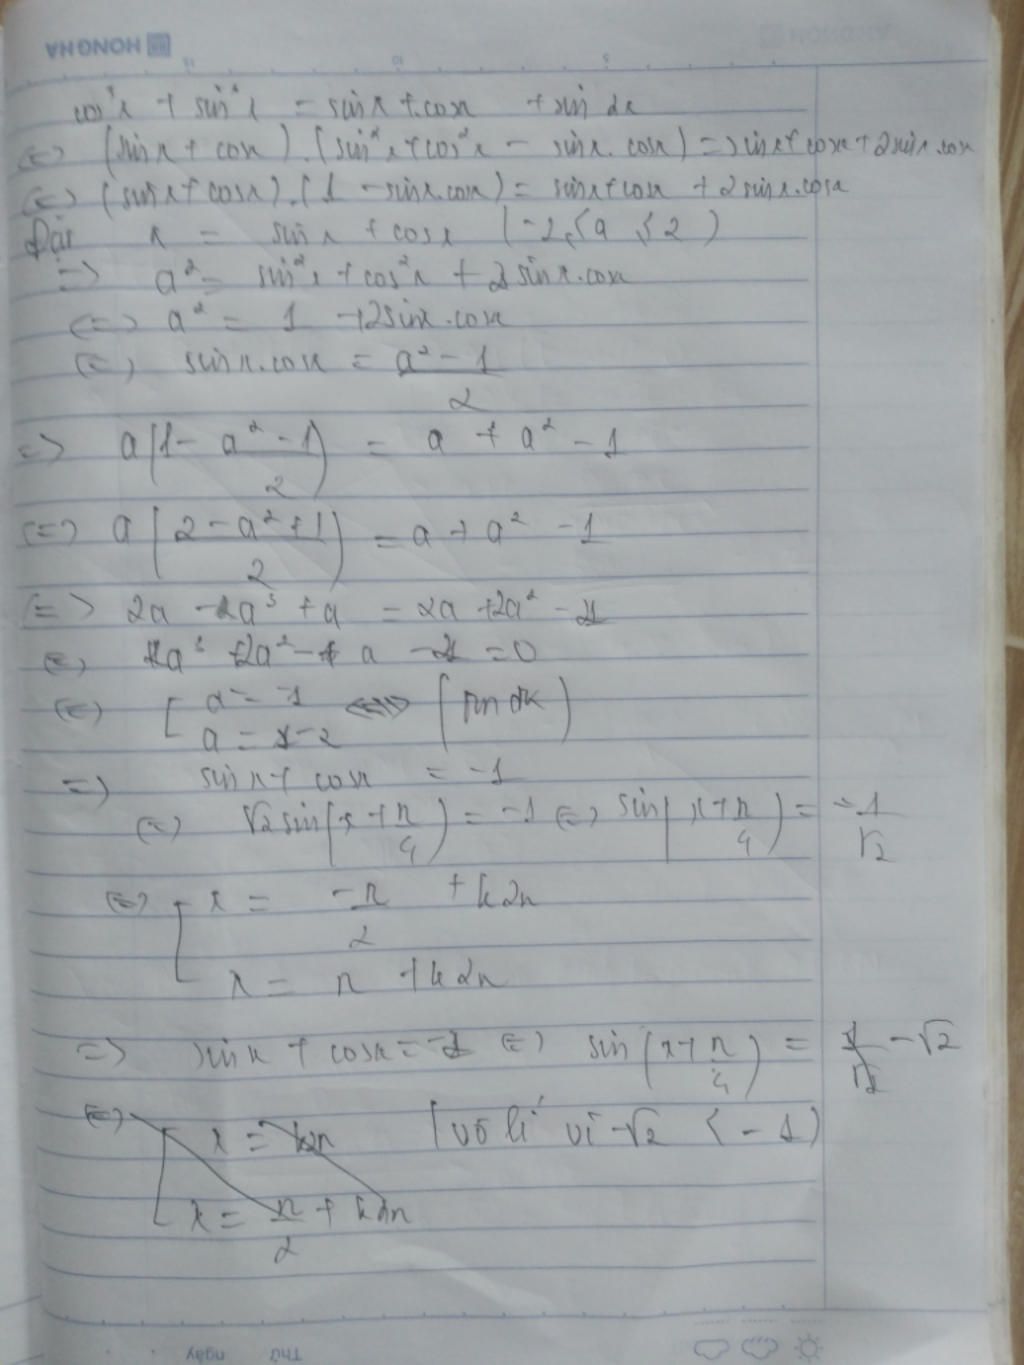 HONG HA
cos³x + sin³x = sinx + cosx + sin 2x
(=) (sinx + cosx).(sin²x + cos²x - sinx.cosx) = sinx + cosx + 2sinx.cosx
(=) (sinx + cosx).(1 - sinx.cosx) = sinx + cosx + 2sinx.cosx
Đặt x = sinx + cosx (-2 ≤ a ≤ 2)
=> a² = sin²x + cos²x + 2sinx.cosx
(=) a² = 1 + 2sinx.cosx
(=) sinx.cosx = (a² - 1)/2
=> a(1 - (a² - 1)/2) = a + a² - 1
(=) a((2 - a² + 1)/2) = a + a² - 1
(=) 2a - a³ + a = 2a + 2a² - 2
(=) a³ + 2a² - a - 2 = 0
(=) [ a = -1
a = -2 (tm đk)
=> sinx + cosx = -1
(=) √2sin(x + π/4) = -1 (=) sin(x + π/4) = -1/√2
(=) [ x = -π/2 + k2π
x = π + k2π
=> sinx + cosx = -2 (=) sin(x + π/4) = -√2
(=) x = k2π (vô lí vì -√2 < -1)
x = π/2 + k2π
Thứ ngày